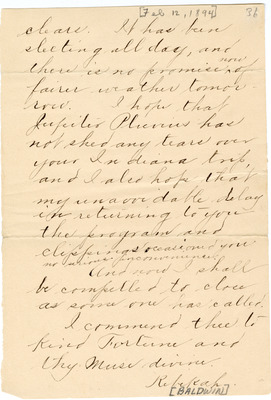 [Feb 12, 1894]
36
clears. It has been
sleeting all day, and
there is no promise now of
fairer weather tomor-
row. I hope that
Jupiter Pluvius has
not shed any tears over
your Indiana trip,
and I also hope that
my unavoidable delay
in returning to you
the program and
clippings occasioned you
no serious inconvenience.
And now I shall
be compelled to close
as some one has called.
I commend thee to
kind Fortune and
thy Muse divine.
Rebekah
[BALDWIN]